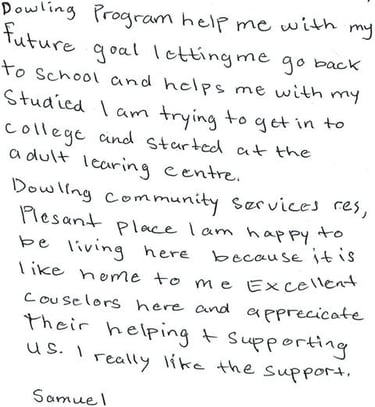 Dowling Program help me with my
future goal letting me go back
to school and helps me with my
Studied I am trying to get in to
college and started at the
adult learing centre.
Dowling community services res,
Plesant place I am happy to
be living here because it is
like home to me Excellent
couselors here and apprecicate
their helping + supporting
us. I really like the support.
Samuel